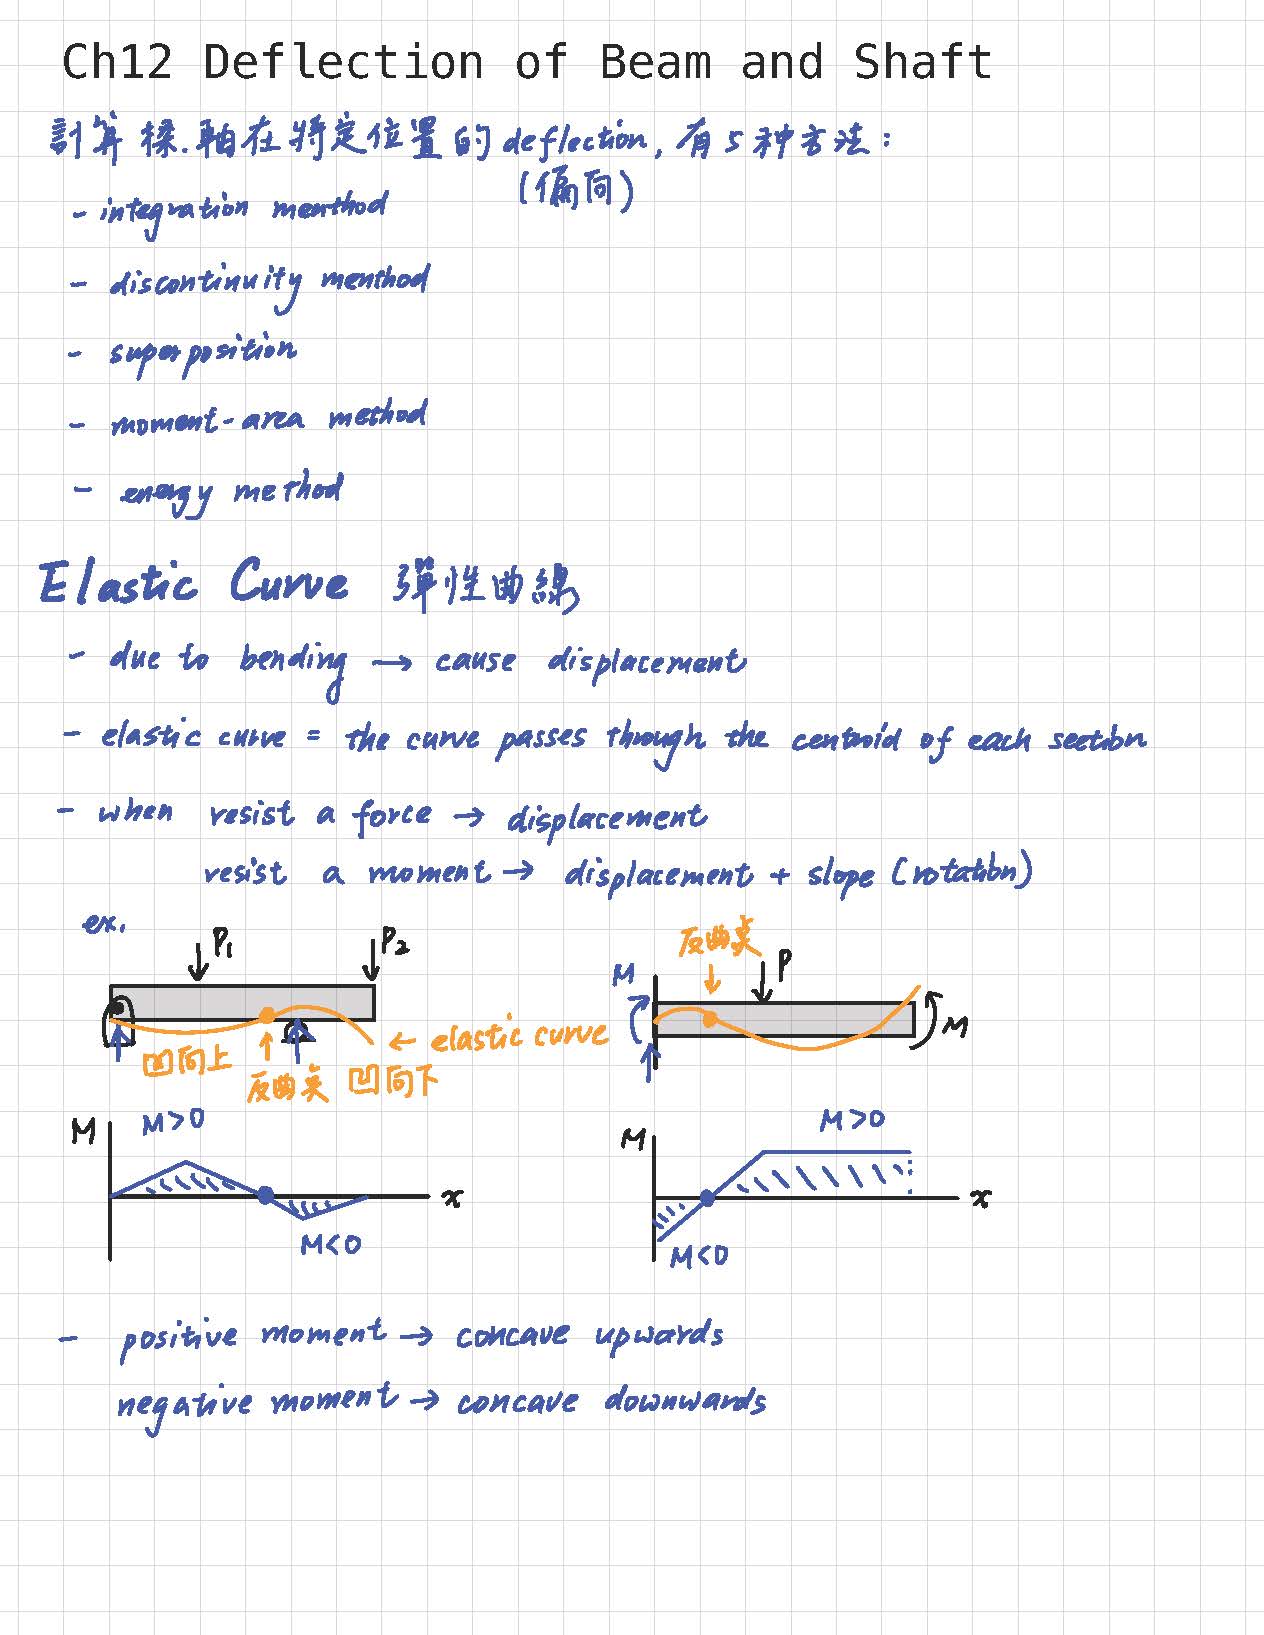 Ch12 Deflection of Beam and Shaft
計算樑.軸在將定位置的 deflection, 有5种方法：
(偏向)
- integration menthod
- discontinuity menthod
- superposition
- moment-area method
- energy method
Elastic Curve 彈性曲線
- due to bending → cause displacement
- elastic curve = the curve passes through the centroid of each section
- when resist a force → displacement
resist a moment → displacement + slope (rotation)
ex.
P₁ P₂
← elastic curve
凹向上
反曲点
凹向下
M
M>0
x
M<0
反曲点
M
P
M
M
M>0
x
M<0
- positive moment → concave upwards
negative moment → concave downwards